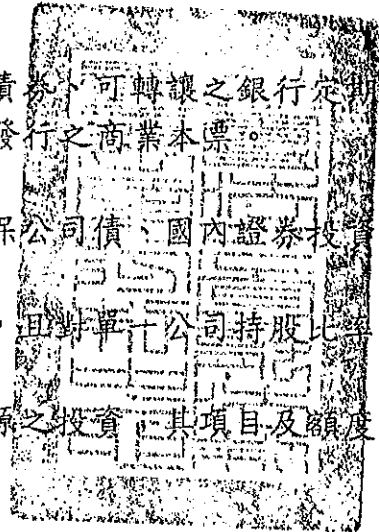 債券、可轉讓之銀行定期
發行之商業本票。
保公司債、國內證券投資
，且對單一公司持股比率
源之投資，其項目及額度